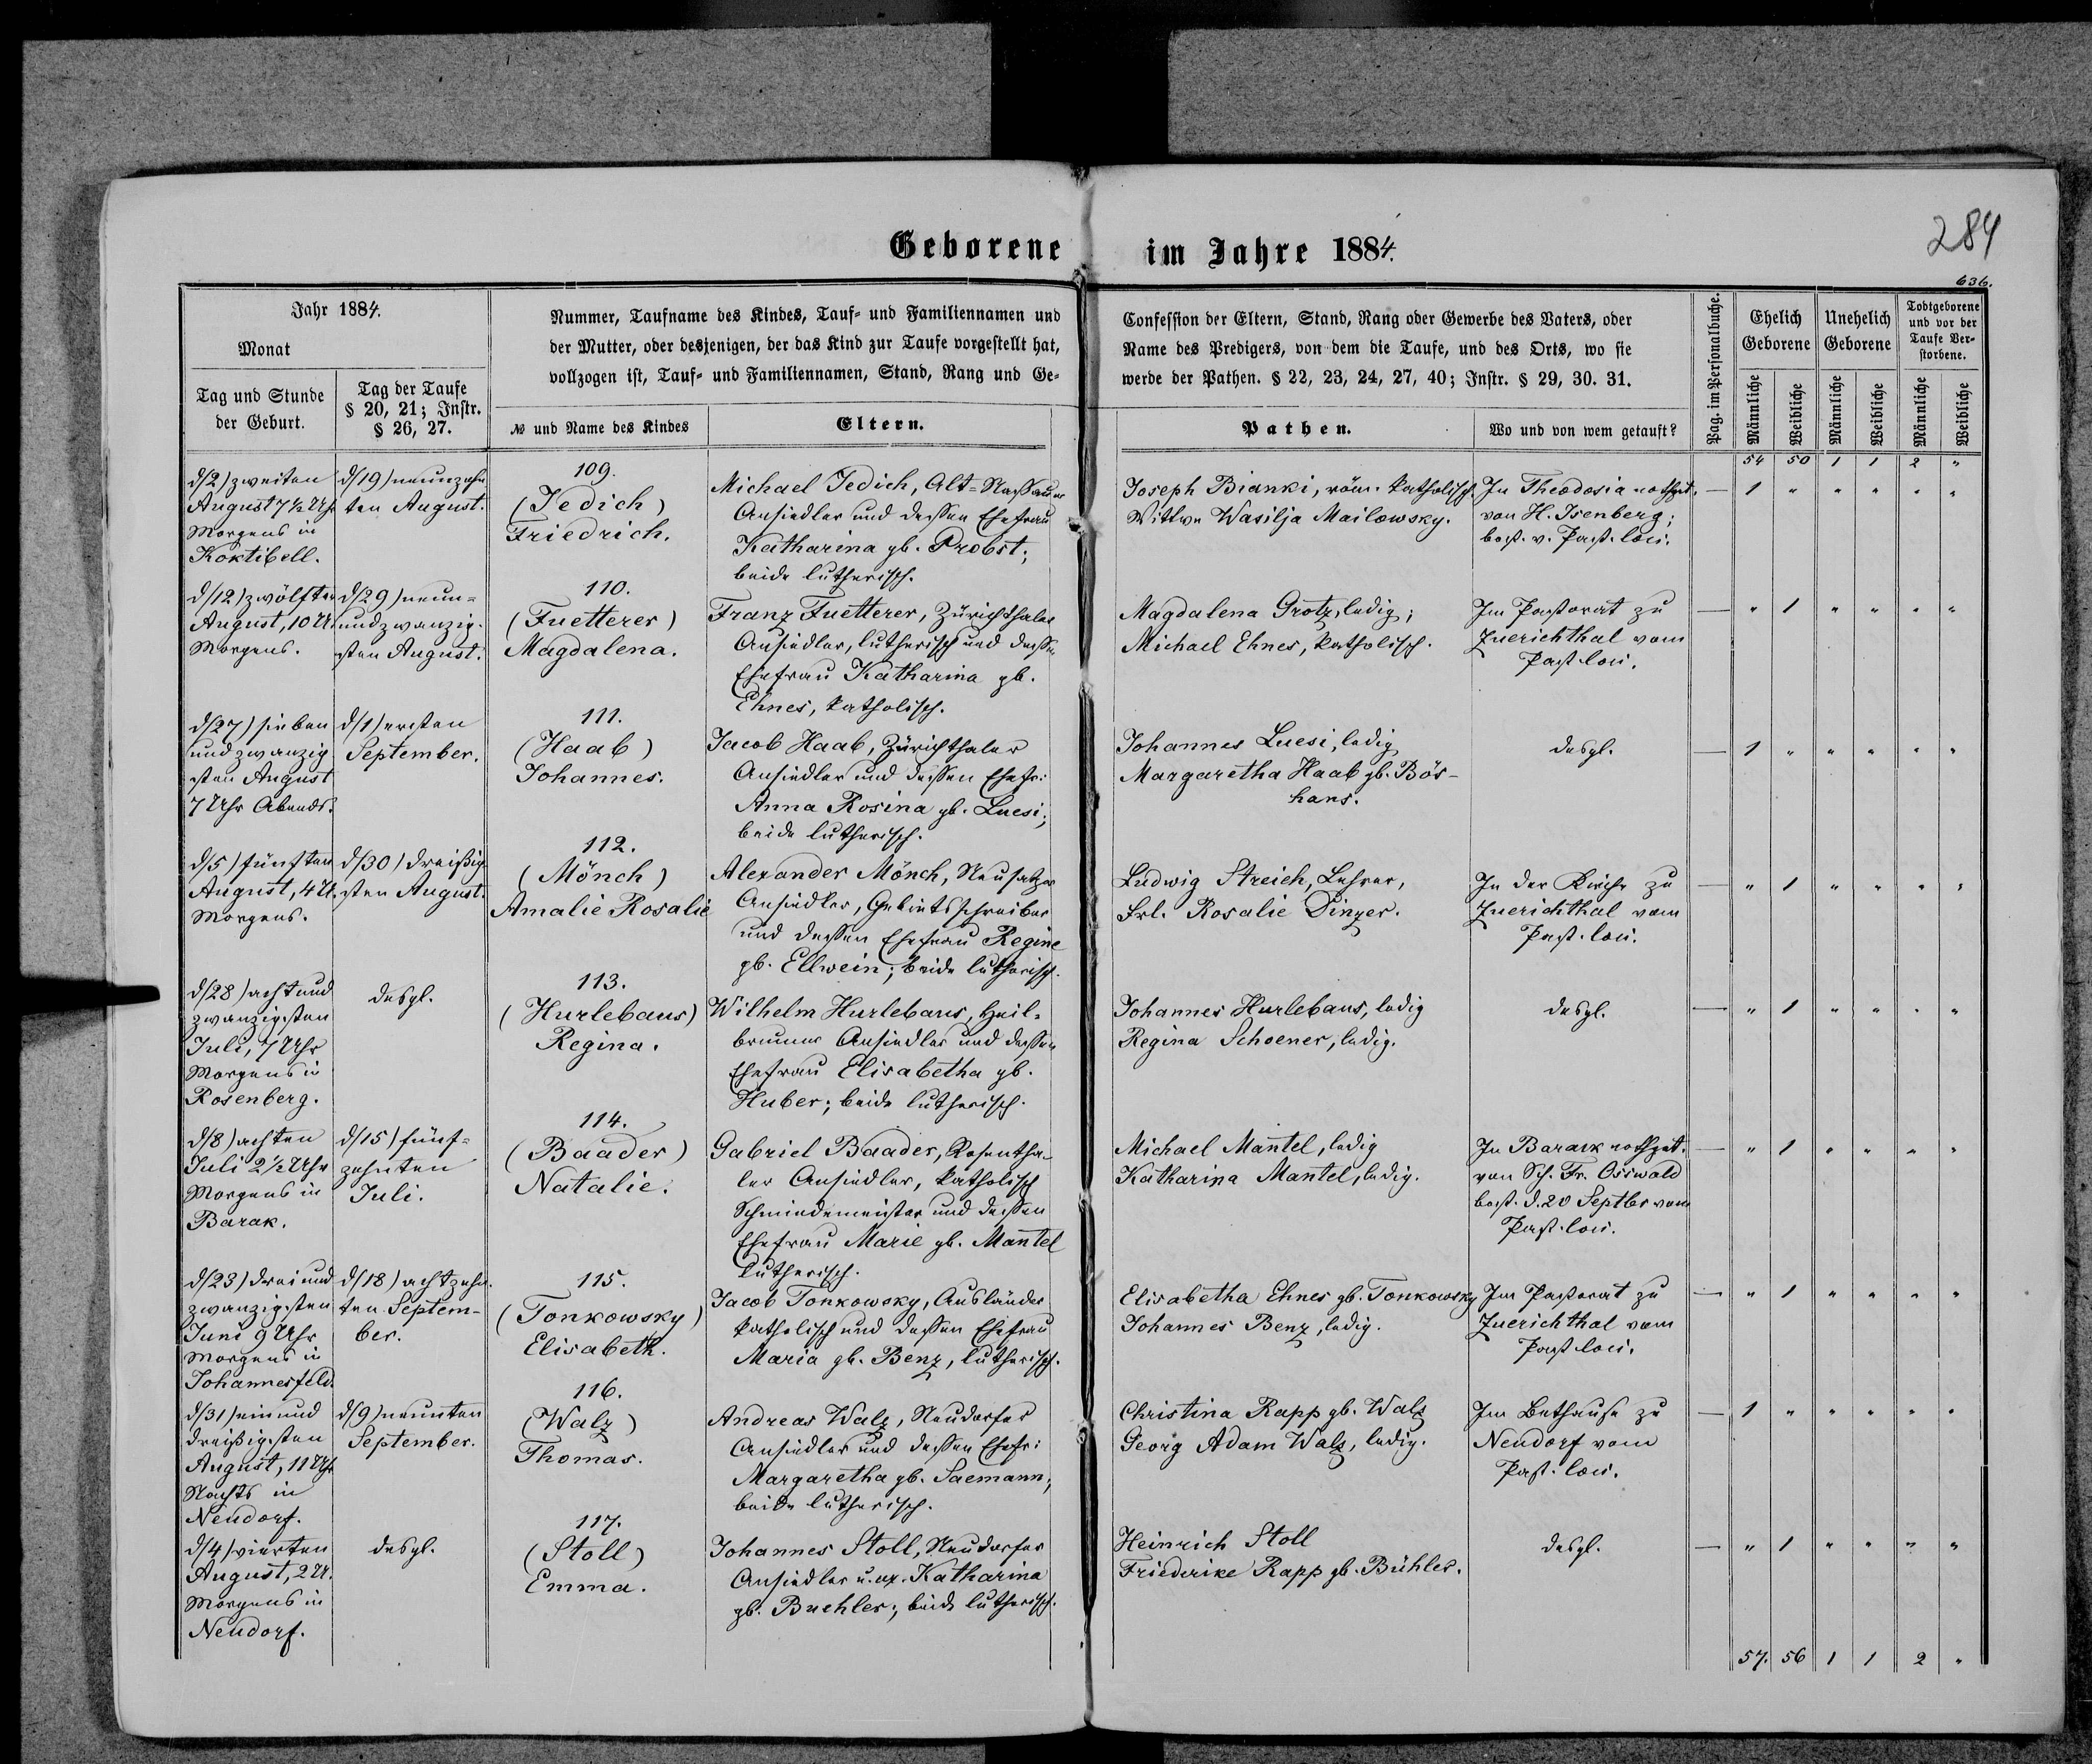 Geborene im Jahre 1884.
284
636.
Jahr 1884.
Monat
Tag und Stunde
der Geburt.
Tag der Taufe
§ 20, 21; Instr.
§ 26, 27.
Nummer, Taufname des Kindes, Tauf- und Familiennamen und
der Mutter, oder desjenigen, der das Kind zur Taufe vorgestellt hat,
vollzogen ist, Tauf- und Familiennamen, Stand, Rang und Ge-
№ und Name des Kindes
Eltern.
Confession der Eltern, Stand, Rang oder Gewerbe des Vaters, oder
Name des Predigers, von dem die Taufe, und des Orts, wo sie
werde der Pathen. § 22, 23, 24, 27, 40; Instr. § 29, 30. 31.
Pathen.
Wo und von wem getauft?
Pag. im Personalbuche.
Ehelich
Geborene
Unehelich
Geborene
Todtgeborene
und vor der
Taufe Ver-
storbene.
Männliche
Weibliche
Männliche
Weibliche
Männliche
Weibliche
54 50 1 1 2 "
d/2) zweiten
August 7½ Uhr
Morgens in
Koktibell.
d/19) neunzehn
ten August.
109.
(Jedich)
Friedrich.
Michael Jedich, Alt-Nassauer
Ansiedler und dessen Ehefrau
Katharina gb. Probst;
beide lutherisch.
Joseph Bianki, röm. katholisch.
Wittwe Wasilja Mailowsky.
In Theodosia nothgt.
von H. Isenberg;
best. v. Past. loci.
— 1 " " " " "
d/12) zwölften
August, 10 U.
Morgens.
d/29) neun-
undzwanzig-
sten August.
110.
(Fuetterer)
Magdalena.
Franz Fuetterer, Zürichthaler
Ansiedler, lutherisch und dessen
Ehefrau Katharina gb.
Ehnes, katholisch.
Magdalena Grotz, ledig;
Michael Ehnes, katholisch.
Im Pastorat zu
Zuerichthal vom
Past loci.
— " 1 " " " "
d/27) sieben
undzwanzig
sten August
7 Uhr Abends.
d/1) ersten
September.
111.
(Haab)
Johannes.
Jacob Haab, Zürichthaler
Ansiedler und dessen Ehefr:
Anna Rosina gb. Luesi;
beide lutherisch.
Johannes Luesi, ledig
Margaretha Haab gb. Bös-
hans.
desgl.
— 1 " " " " "
d/5) fünften
August, 4 U.
Morgens.
d/30) dreißig
sten August.
112.
(Mönch)
Amalie Rosalie
Alexander Mönch, Neusatzer
Ansiedler, Gebietsschreiber
und dessen Ehefrau Regine
gb. Ellwein; beide lutherisch.
Ludwig Streich, Lehrer,
Frl. Rosalie Dinzer.
In der Kirche zu
Zuerichthal vom
Past. loci.
— " 1 " " " "
d/28) acht und
zwanzigsten
Juli, 7 Uhr
Morgens in
Rosenberg.
desgl.
113.
(Hurlebaus)
Regina.
Wilhelm Hurlebaus, Heil-
brunner Ansiedler und dessen
Ehefrau Elisabetha gb.
Huber; beide lutherisch.
Johannes Hurlebaus, ledig
Regina Schoener, ledig.
desgl.
— " 1 " " " "
d/8) achten
Juli 2½ Uhr
Morgens in
Barak.
d/15) fünf-
zehnten
Juli.
114.
(Baader)
Natalie.
Gabriel Baader, Rosentha-
ler Ansiedler, katholisch
Schmiedemeister und dessen
Ehefrau Marie gb. Mantel
lutherisch.
Michael Mantel, ledig
Katharina Mantel, ledig.
In Barack nothgt.
von Sch. Fr. Osswald
best. d. 20 Septbr vom
Past. loci.
— " 1 " " " "
d/23) drei und
zwanzigsten
Juni 9 Uhr
Morgens in
Johannesfeld.
d/18) achtzehn
ten Septem-
ber.
115.
(Tonkowsky)
Elisabeth.
Jacob Tonkowsky, Ausländer
katholisch und dessen Ehefrau
Maria gb. Benz, lutherisch.
Elisabetha Ehnes gb. Tonkowsky
Johannes Benz, ledig.
Im Pastorat zu
Zuerichthal vom
Past loci.
— " 1 " " " "
d/31) ein und
dreißigsten
August, 11 Uhr
Nachts in
Neudorf.
d/9) neunten
September.
116.
(Walz)
Thomas.
Andreas Walz, Neudorfer
Ansiedler und dessen Ehefr:
Margaretha gb. Saemann;
beide lutherisch.
Christina Rapp gb. Walz
Georg Adam Walz, ledig.
Im Bethause zu
Neudorf vom
Past. loci.
— 1 " " " " "
d/4) vierten
August, 2 U.
Morgens in
Neudorf.
desgl.
117.
(Stoll)
Emma.
Johannes Stoll, Neudorfer
Ansiedler u. ux. Katharina
gb. Buehler; beide lutherisch.
Heinrich Stoll
Friederike Rapp gb. Bühler.
desgl.
— " 1 " " " "
57. 56 1 1 2 "